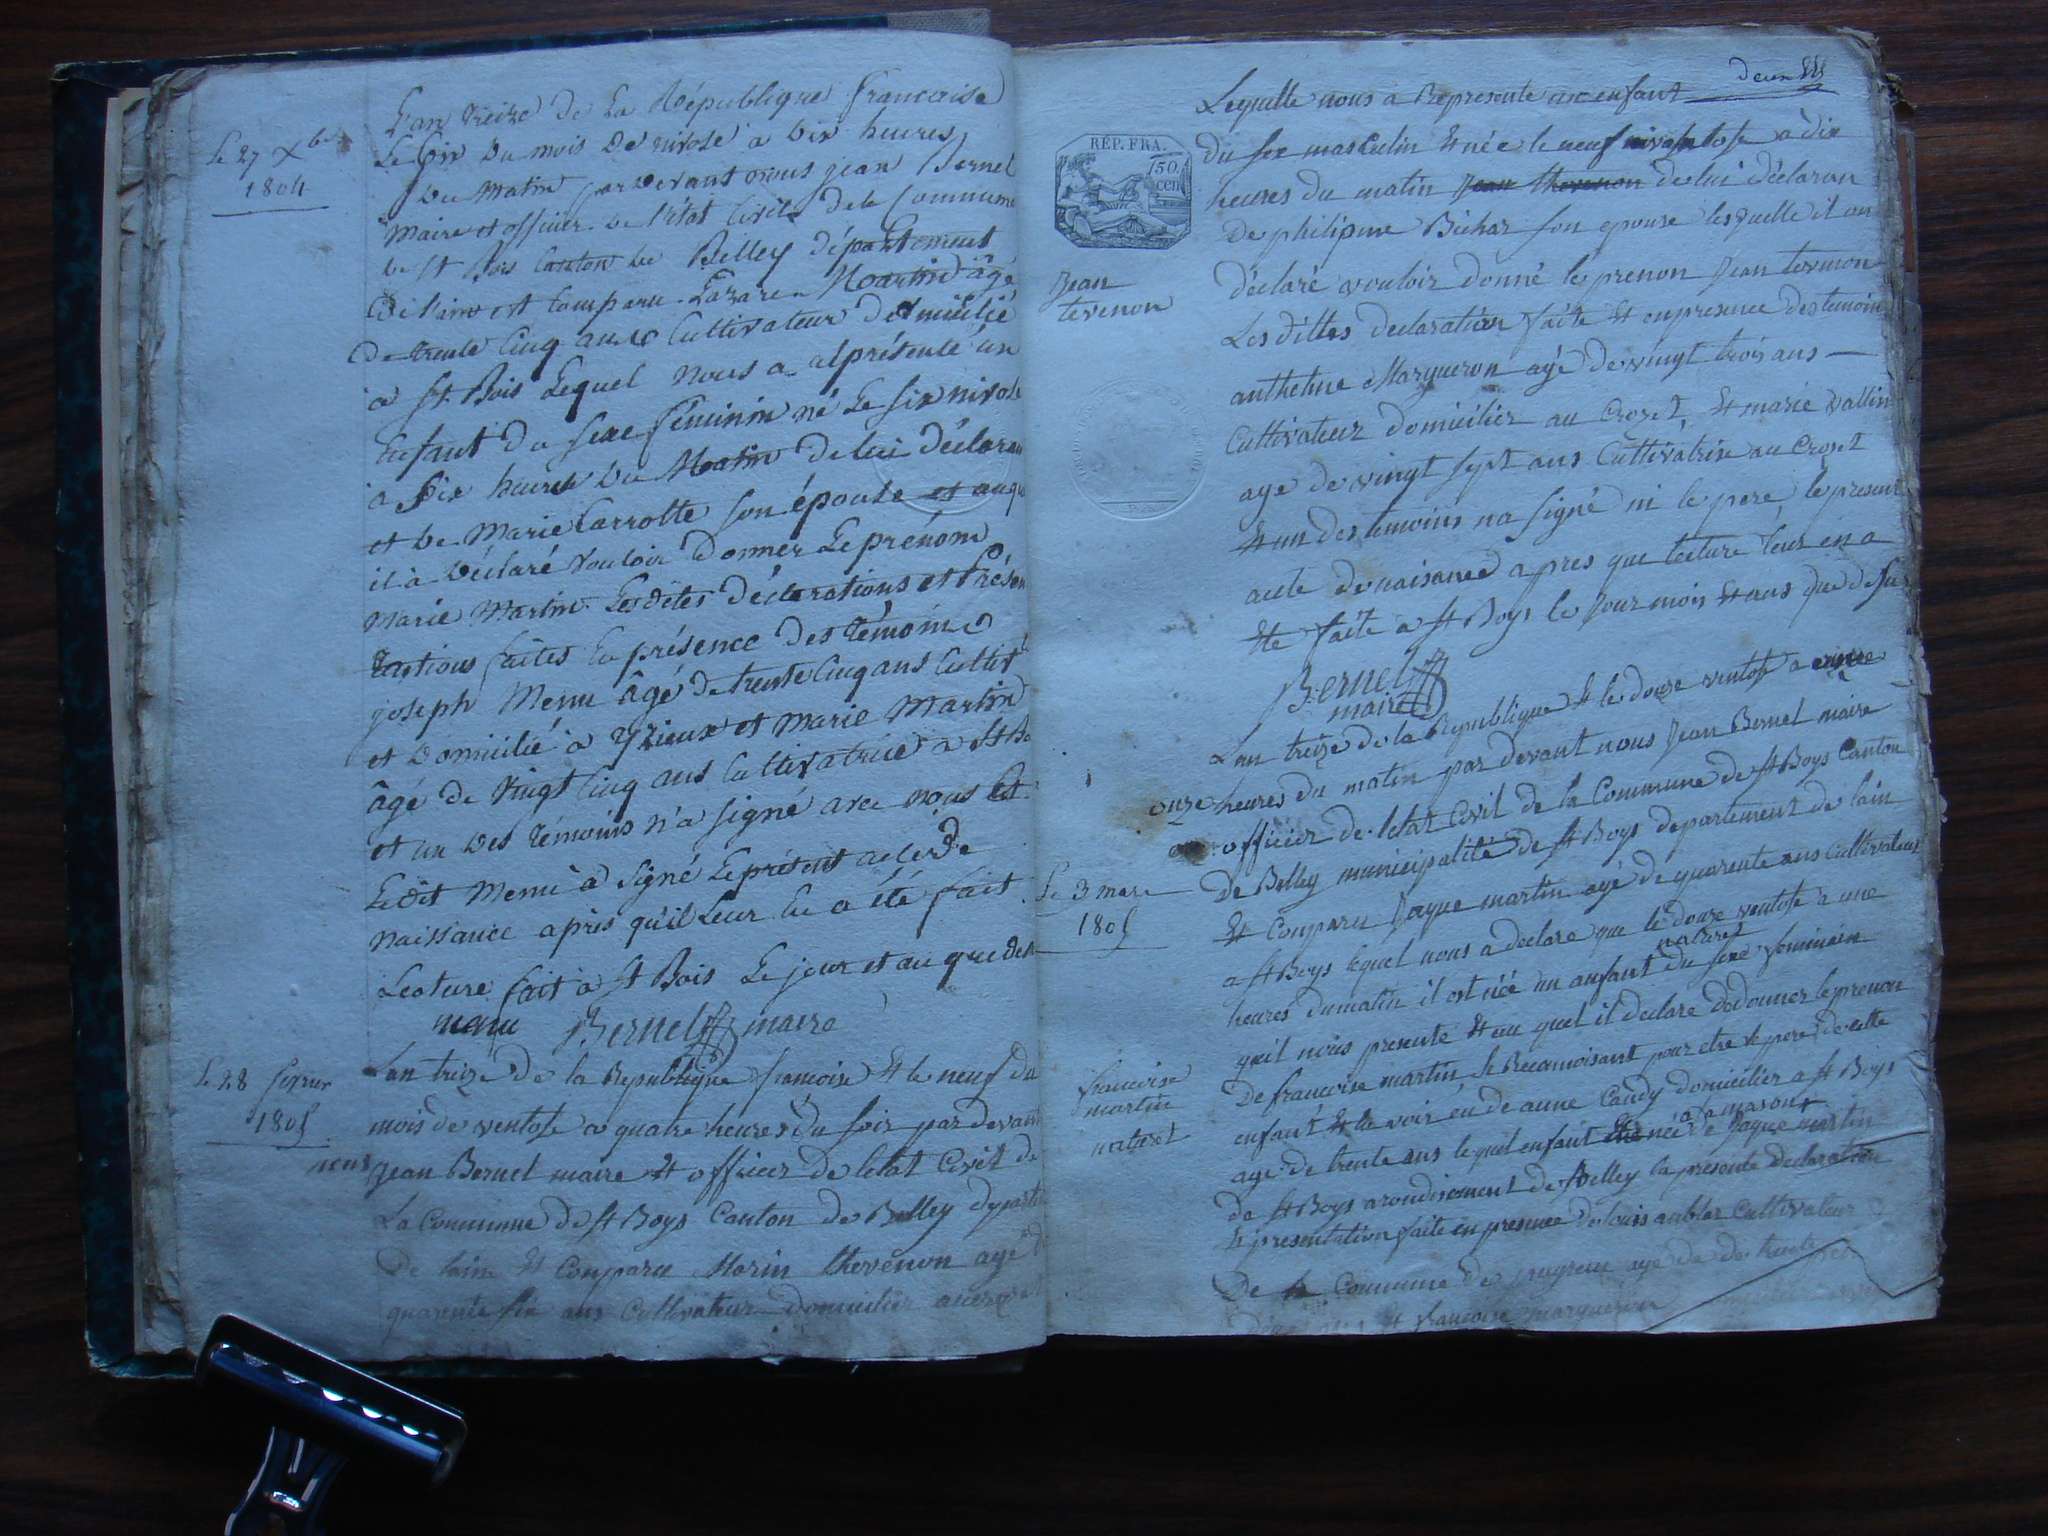 Le 27 Xbre
1804
L'an treize de la République francaise
Le six du mois de nivose à dix heures
du matin pardevant nous jean Bernel
maire et officier de l'état Civile de la Commune
de St Bois Canton de Belley département
de l'ain est Comparu Lazare Martin âgé
de trente Cinq ans Cultivateur domicilié
à St Bois Lequel nous a présenté un
Enfant du sexe féminin né Le six nivose
à six heures du Matin de lui déclarant
et de Marie Carrotte son épouse et auquel
il à déclaré vouloir donner Le prénom
Marie Martin Lesdites déclarations et Présen
tations faites En présence des témoins
joseph Menu âgé de trente Cinq ans Cultivr
et domicilié à yzieux et marie Martin
âgé de vingt Cinq ans Cultivatrice a St Bo
et un des témoins n'a signé avec nous Et
Ledit Menu à signé Le présent acte de
naissance après qu'il Leur En a été fait
Lecture fait à St Bois Le jour et an que des
menu Bernel maire
Le 28 fevrier
1805
L'an treize de la Republique francoise et le neuf du
mois de ventose a quatre heures du soir par devant
nous jean Bernel maire et officier de letat Civil de
La Commune de St Boys Canton de Belley departe
De lain et Comparu Morin thevenon agé d
quarente six ans Cultivateur domicilier aucrozet
deux
Lequelle nous a Representé un enfant
RÉP. FRA.
50
cen
du sex masculin et née le neuf ventose a dix
heures du matin jean thevenon de lui déclaran
De philipine Bichar son epouse lesquelle il on
Jean
tevenon
déclaré vouloir donné le prenon jean tevenon
Les dittes declaration faite et en presence des temoin
anthelme Margueron agé de vingt trois ans
Cultivateur domicilier au Crozet, et marie vallin
age de vingt sept ans Cultivatrice au Crozet
et un des temoins na signé ni le pere, le present
acte de naisance apres que lecture leur en a
ete faite a St Boys le jour mois et ans que desus
Bernel
maire
Lan treize de la Republique et le douze ventose a
onze heures du matin par devant nous Jean Bernel maire
officier de letat Civil de la Commune de St Boys Canton
de Belley municipalité de St Boys departement de lain
Le 3 mars
1805
et Comparu Jaque martin agé de quarente ans Cultivateur
a St Boys lequel nous a declare que le douze ventose a une
heures dumatin il est néé un anfant naturel du sexe feminin
quil nous presente et au quel il declare dedonner le prenon
francoise
martin
naturel
De francoise martin se Reconnoisant pour etre le pere de cette
enfant et le voir eu de anne Candy domicilier a St Boys
age de trente ans lequel enfant née a la maison de jaque martin
de St Boys arondisement de Belley la presente declaration
et presentation faite en presence de louis aubler Cultivateur
De la Commune de pugieu age de de trente
et francoise margueron